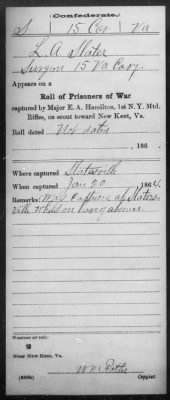 (Confederate.)
S 15 Cav Va
L. A. Slater
Surgeon 15 Va Cavy.
Appears on a
Roll of Prisoners of War
captured by Major E. A. Hamilton, 1st N. Y. Mtd.
Rifles, on scout toward New Kent, Va.
Roll dated Not dated
, 186 .
Where captured Slatersville
When captured Jan 20, 1864.
Remarks: Was captured at Slaters-
ville while on
Number of roll:
2
Near New Kent, Va.
Copyist.